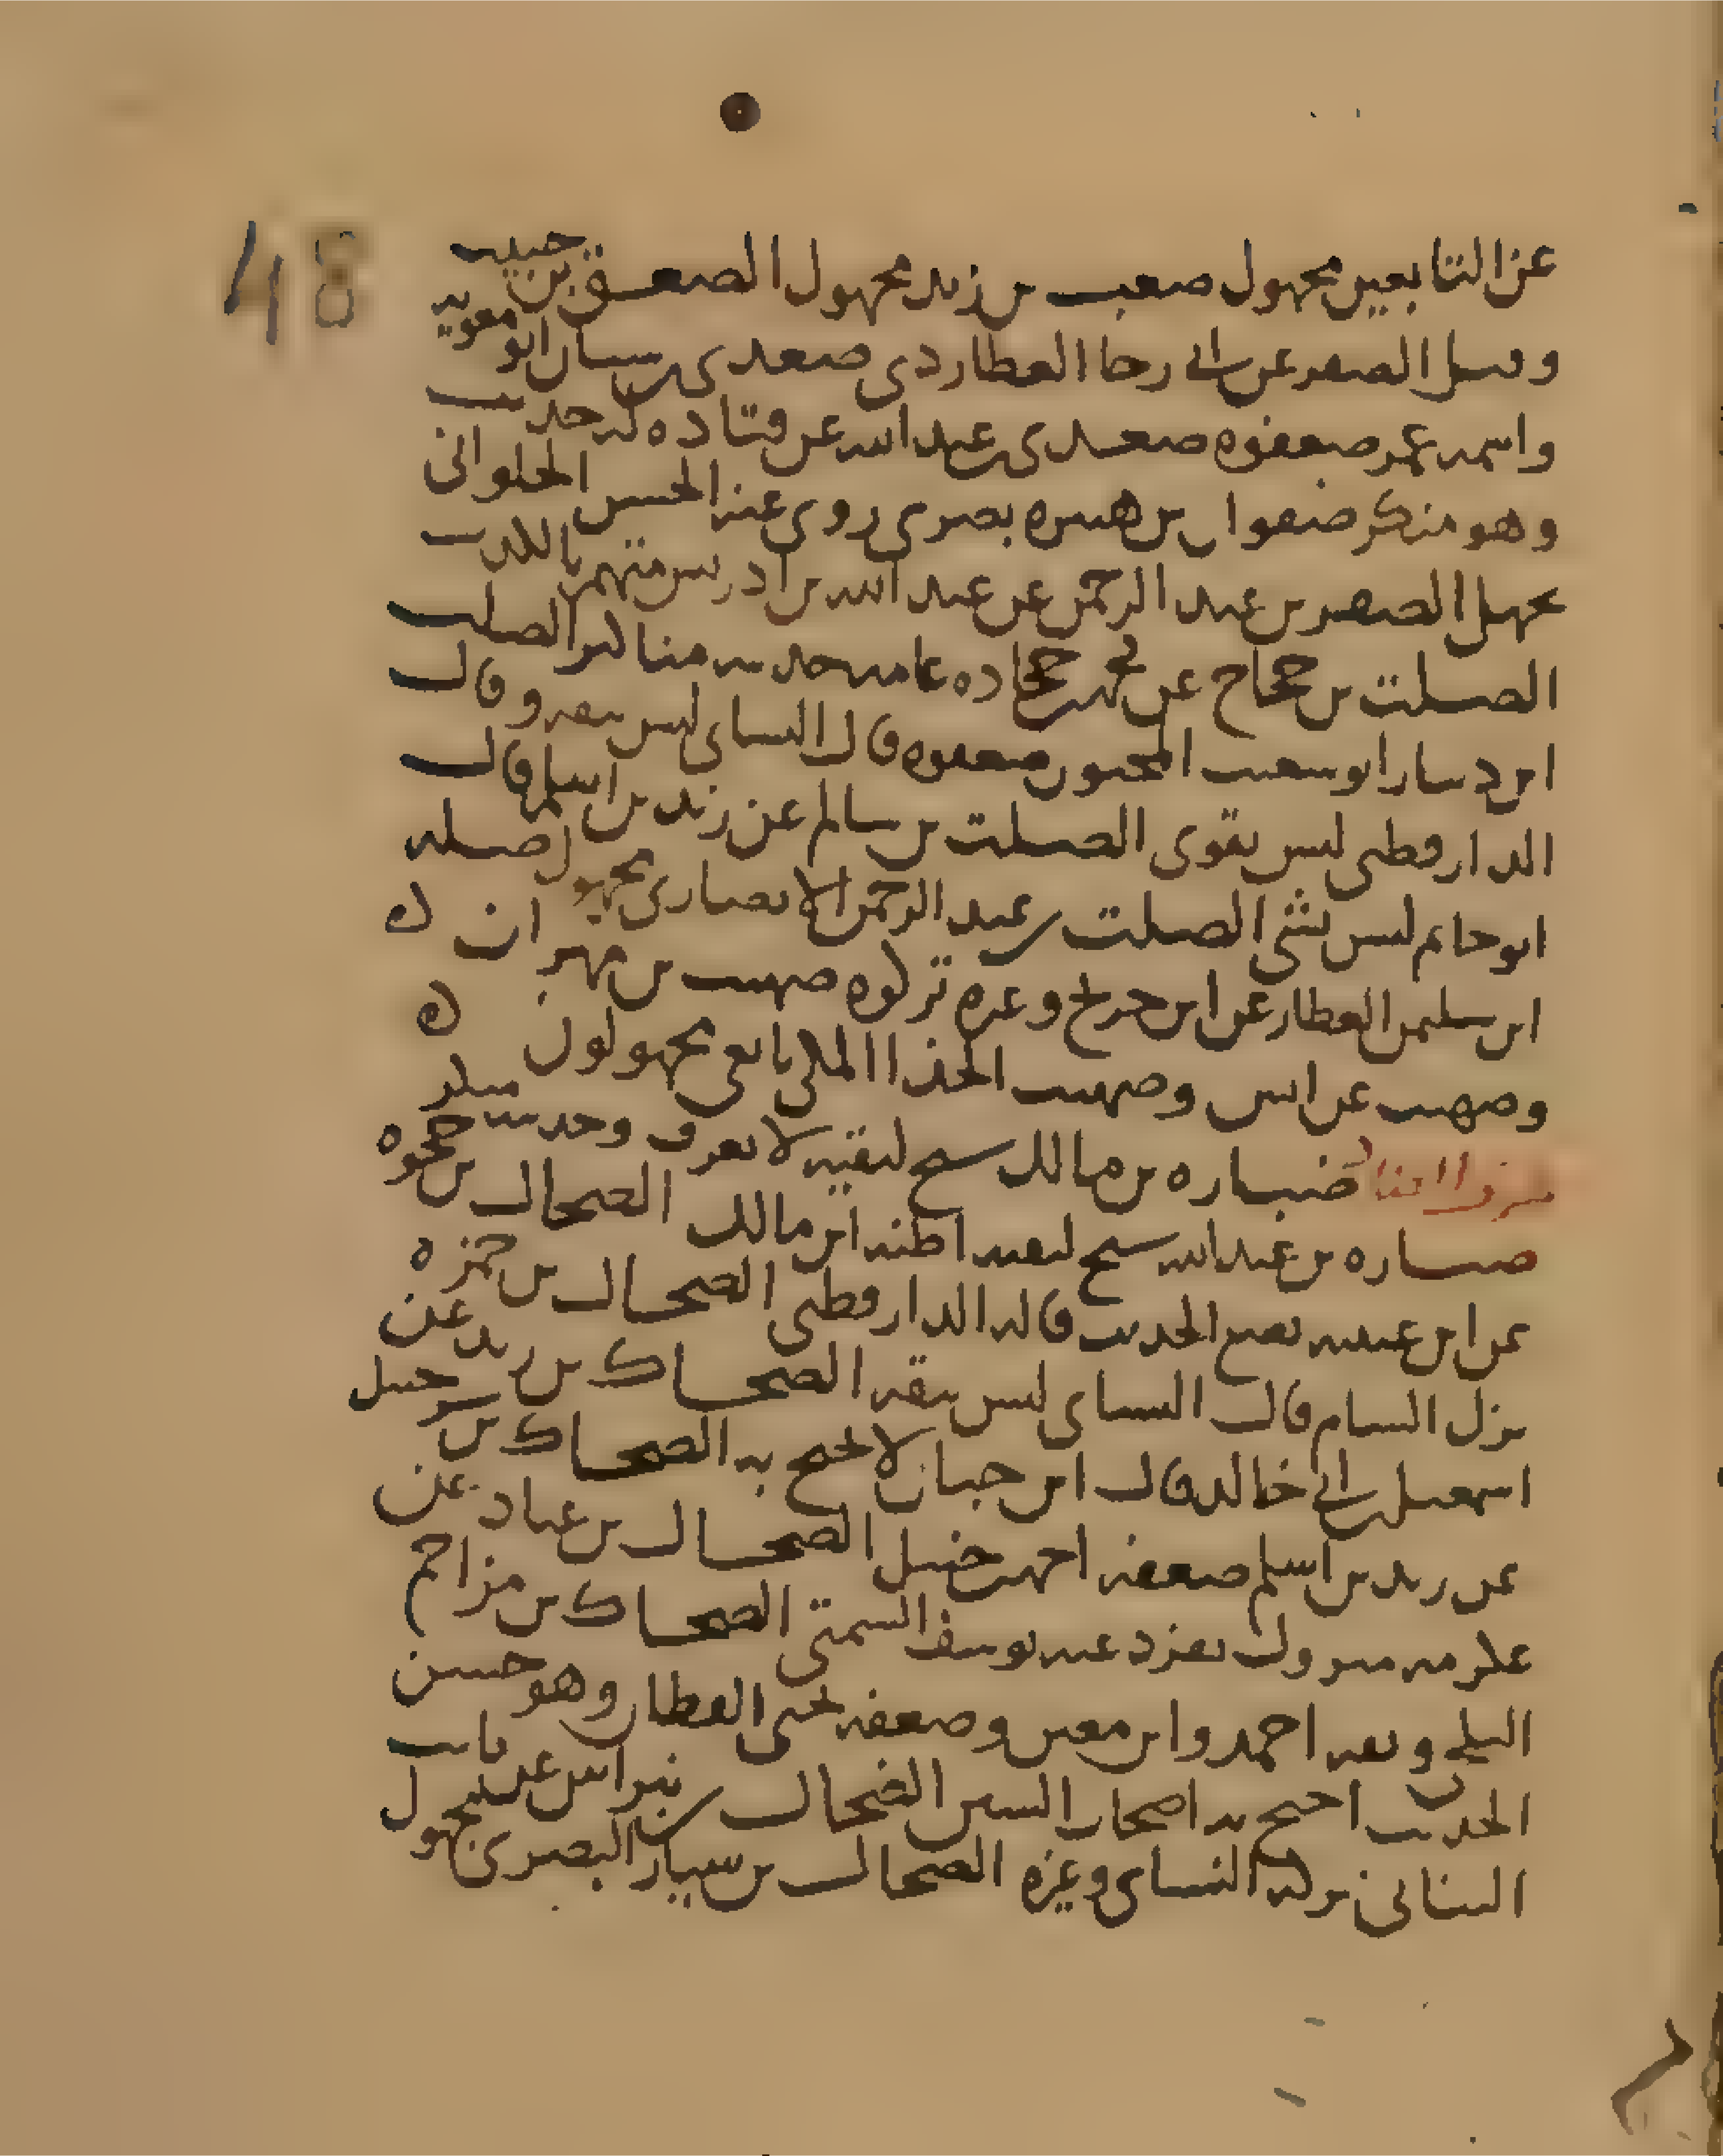 48
عن التابعين مجهول صعب بن زيد مجهول الصعق بن حبيب
وقيل الصقر عن ابي رجا العطاردي صغدي بن سنان ابو معوية
واسمه عمر ضعفوه صغدي بن عبد الله عن قتادة له حديث
وهو منكر صفوان بن هبيرة بصري روى عنه الحسن الحلواني
مجهل الصقر بن عبد الرحمن عن عبد الله بن ادريس متهم بالكذب
الصلت بن حجاج عن محمد بن جحادة عامة حديثه مناكير الصلت
ابن دينار ابو شعيب المجنون ضعفوه قال النساي ليس بثقة وقال
الدارقطني ليس بقوي الصلت بن سالم عن زيد بن اسلم قال
ابو حاتم ليس بشي الصلت بن عبد الرحمن الانصاري مجهول صلة
ابن سليمن العطار عن ابن جريج وغيره تركوه صهيب بن مهران ه
وصهيب عن انس وصهيب الحذا المكي تابعي مجهولون ه
حرف الضاد ضبارة بن مالك شيخ لبقية لا يعرف وحديثه منكر
ضبارة بن عبد الله شيخ لبقية اظنه ابن مالك الضحاك بن حجوه
عن ابن عيينة يضع الحديث قاله الدارقطني الضحاك بن حمزة
نزل الشام قال النساي ليس بثقة الضحاك بن زيد عن
اسمعيل بن ابي خالد قال ابن حبان لا يحتج به الضحاك بن شرحبيل
عن زيد بن اسلم ضعفه احمد بن حنبل الضحاك بن عباد عن
عكرمة متروك تفرد عنه يوسف السمتي الضحاك بن مزاحم
البلخي وثقه احمد وابن معين وضعفه يحيى القطان وهو حسن
الحديث احتج به اصحاب السنن الضحاك بن نبراس عن ثابت
البناني تركه النساي وغيره الضحاك بن سيار البصري مجهول